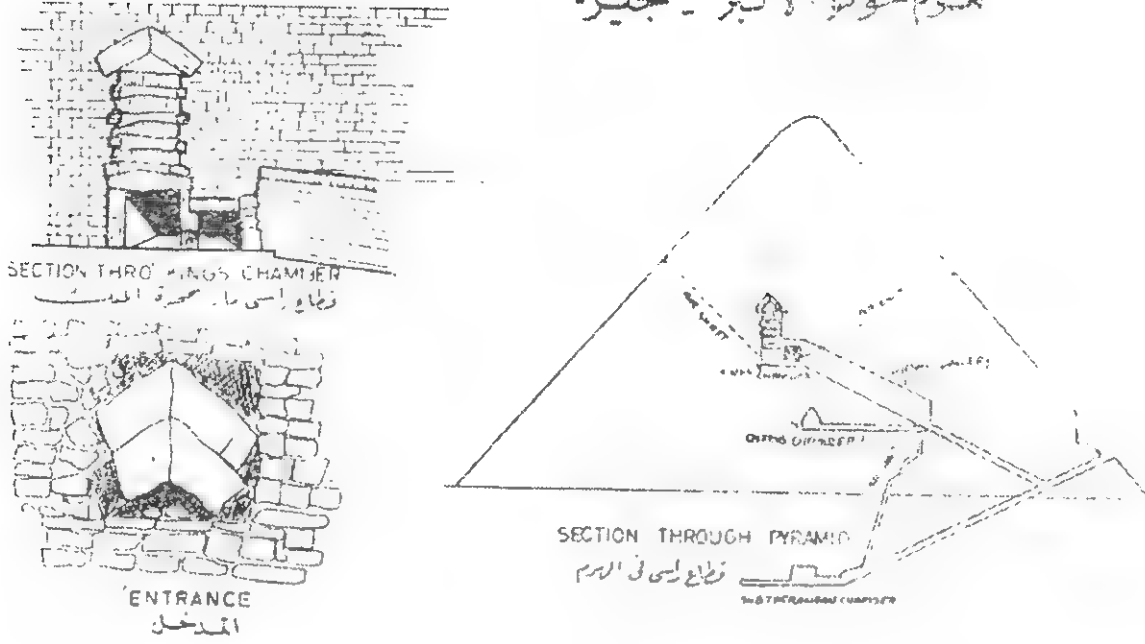 هرم خوفو الأكبر - جيزة
SECTION THRO' KINGS CHAMBER
قطاع رأسى مار
ENTRANCE
المدخل
AIR SHAFT
KINGS CHAMBER
QUEENS CHAMBER
SECTION THROUGH PYRAMID
قطاع رأسى فى الهرم
SUBTERRANEAN CHAMBER